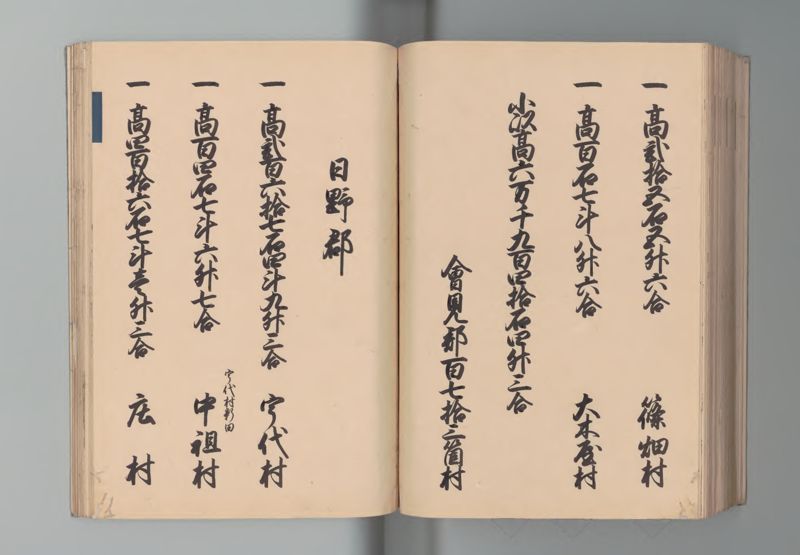 一 高貳拾五石五升六合 篠畑村
一 高百石七斗八升六合 大木屋村
小以高六万千九百四拾石四升三合
會見郡百七拾三箇村
日野郡
一 高貳百六拾七石四斗九升三合 宇代村
宇代村新田
一 高百四石七斗六升七合 中祖村
一 高四百拾六石七斗壱升三合 庄村